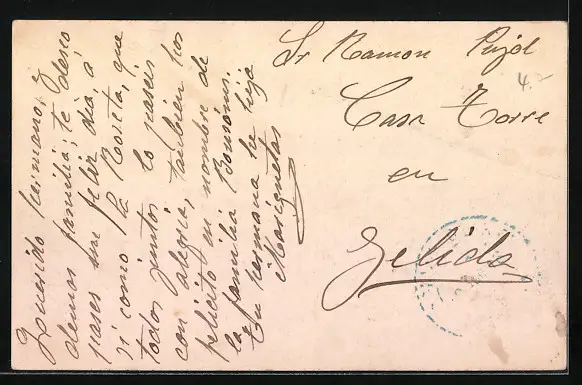 Querido hermano, y
demas familia; te deseo
pases un feliz dia, á
si como la Roseta, que
todos juntos lo paseis
con alegria, tambien hos
felicito en nombre de
la familia Bonsoms.
Tu hermana te
Sr Ramon Pujol
Casa Torre
en
Gelida
4.-